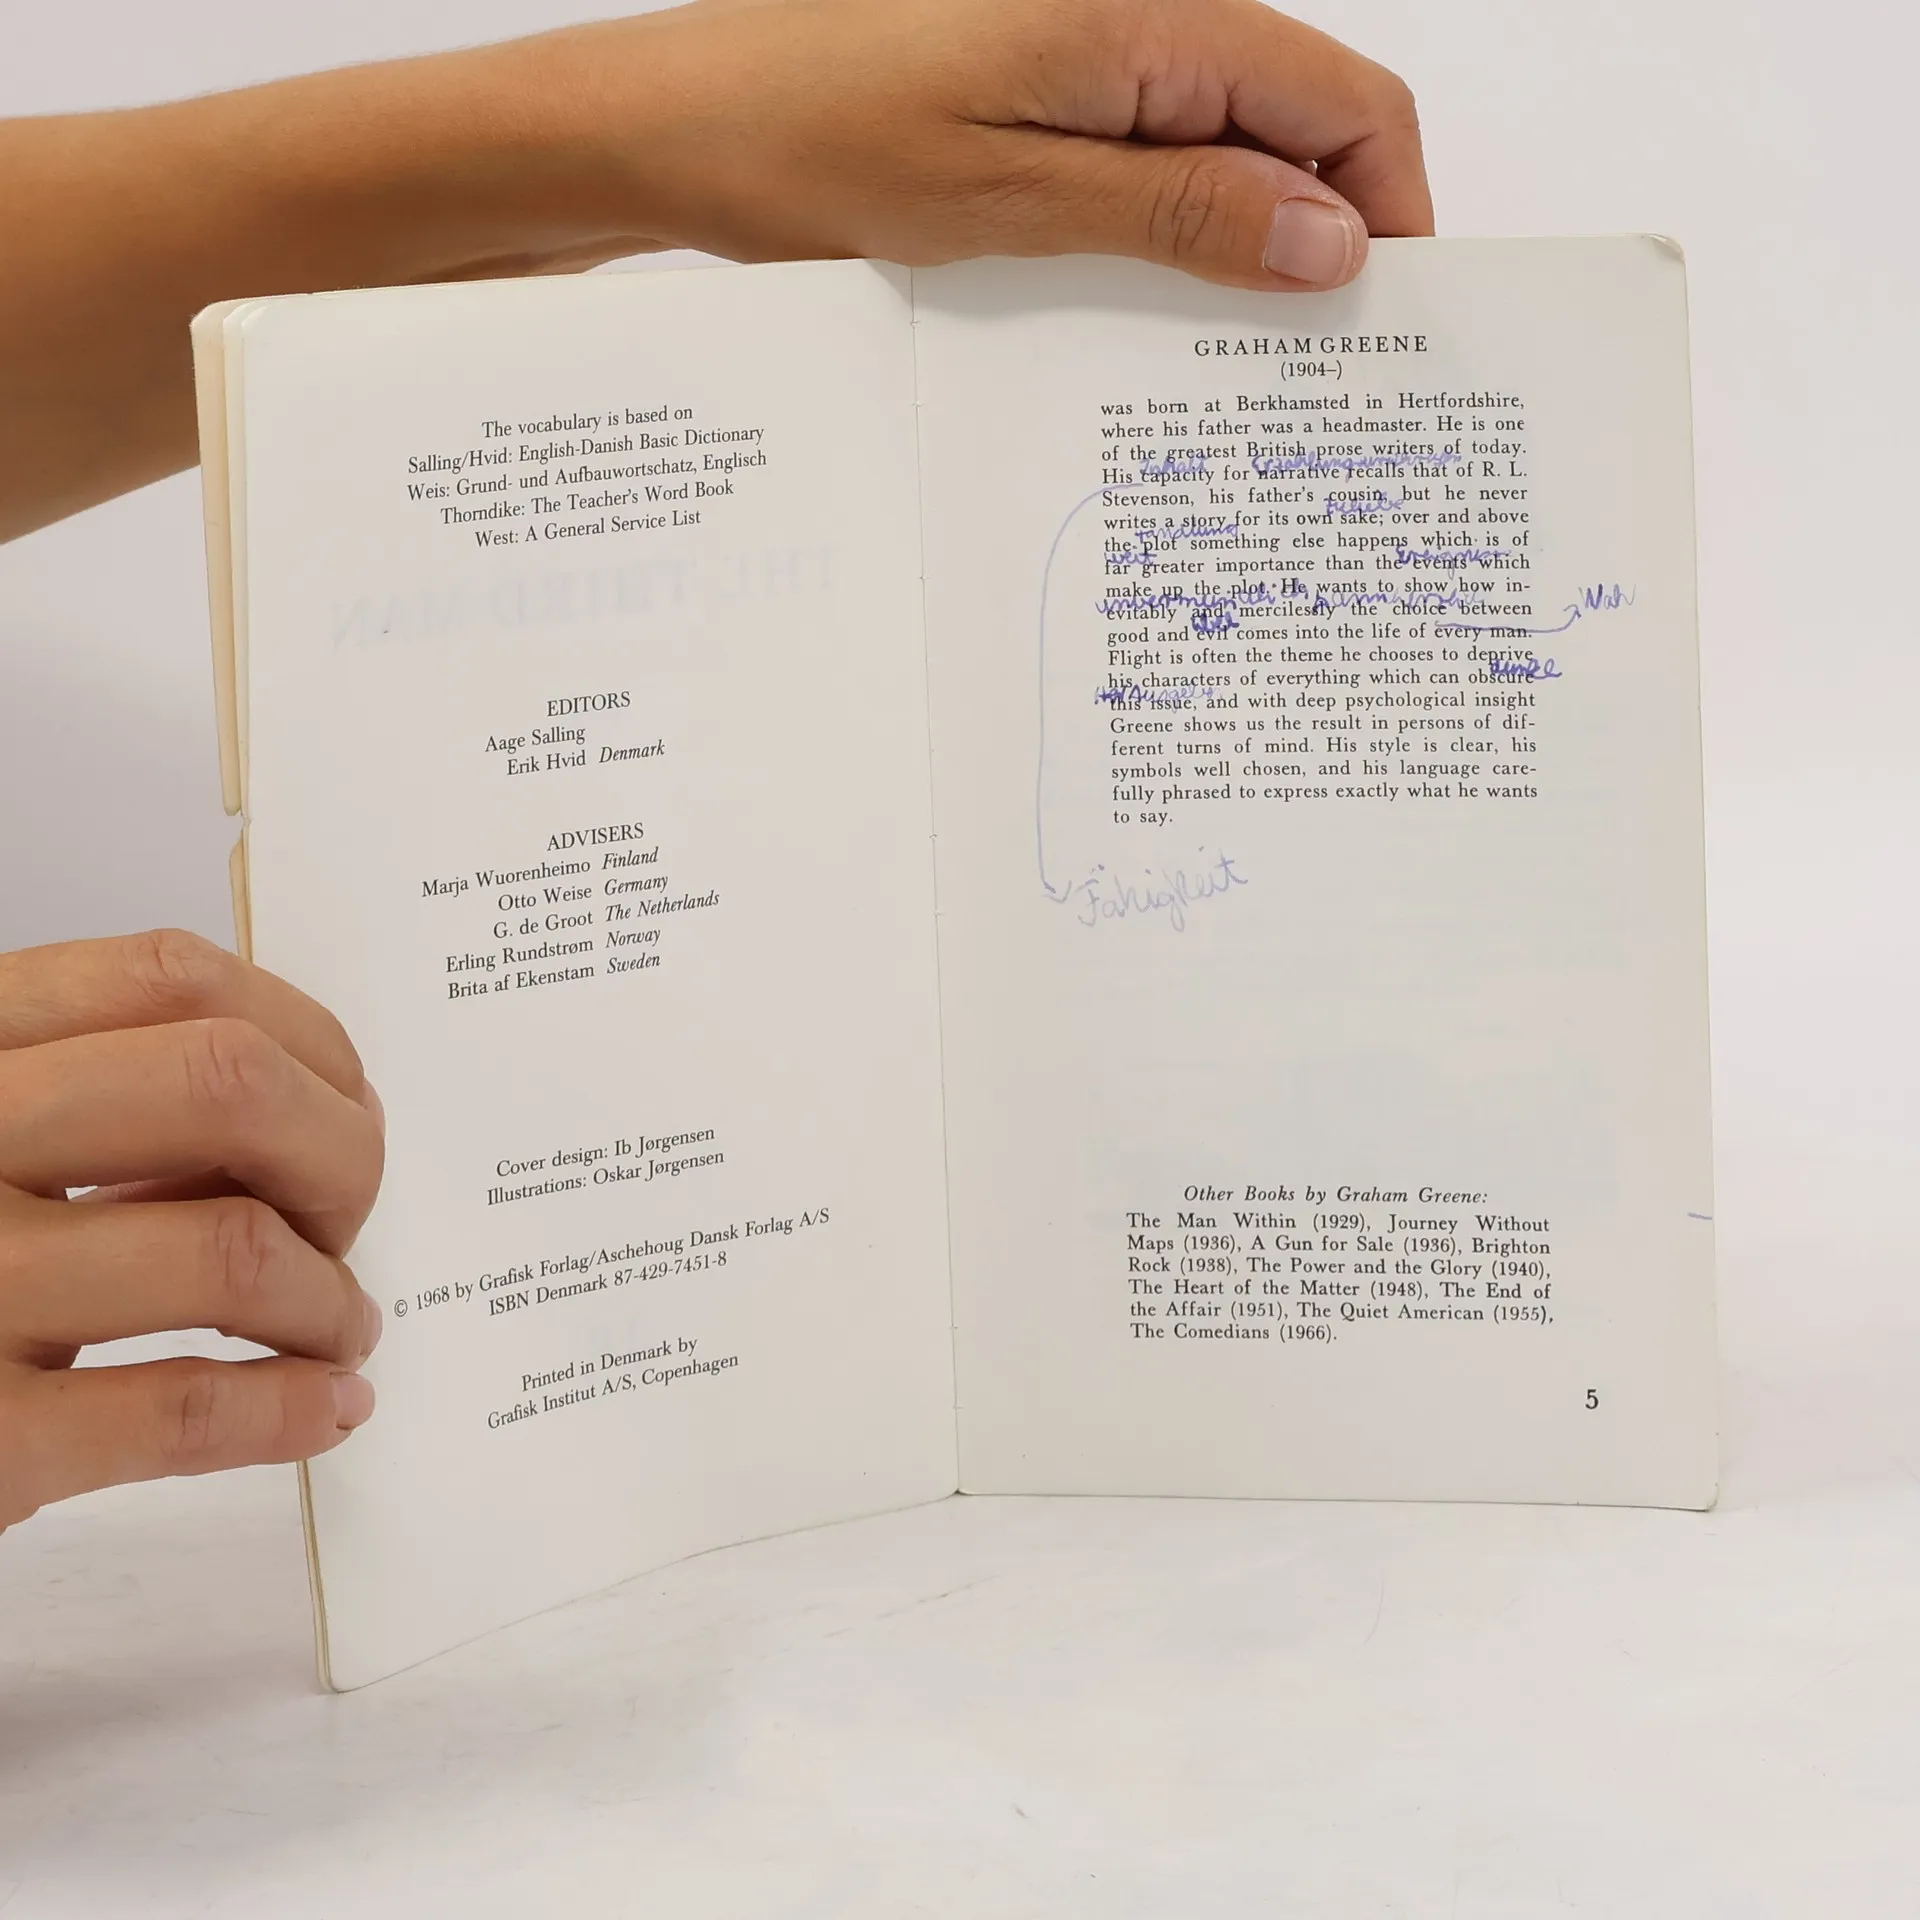 The vocabulary is based on
Salling/Hvid: English-Danish Basic Dictionary
Weis: Grund- und Aufbauwortschatz, Englisch
Thorndike: The Teacher's Word Book
West: A General Service List
EDITORS
Aage Salling
Erik Hvid Denmark
ADVISERS
Marja Wuorenheimo Finland
Otto Weise Germany
G. de Groot The Netherlands
Erling Rundstrøm Norway
Brita af Ekenstam Sweden
Cover design: Ib Jørgensen
Illustrations: Oskar Jørgensen
© 1968 by Grafisk Forlag/Aschehoug Dansk Forlag A/S
ISBN Denmark 87-429-7451-8
Printed in Denmark by
Grafisk Institut A/S, Copenhagen
GRAHAM GREENE
(1904–)
was born at Berkhamsted in Hertfordshire,
where his father was a headmaster. He is one
of the greatest British prose writers of today.
Inhalt
His capacity for narrative recalls that of R. L.
Stevenson, his father's cousin, but he never
writes a story for its own sake; over and above
Handlung
the plot something else happens which is of
weit
far greater importance than the events which
make up the plot. He wants to show how in-
evitably and mercilessly the choice between
Wahl
good and evil comes into the life of every man.
Flight is often the theme he chooses to deprive
his characters of everything which can obscure
this issue, and with deep psychological insight
Greene shows us the result in persons of dif-
ferent turns of mind. His style is clear, his
symbols well chosen, and his language care-
fully phrased to express exactly what he wants
to say.
Fähigkeit
Other Books by Graham Greene:
The Man Within (1929), Journey Without
Maps (1936), A Gun for Sale (1936), Brighton
Rock (1938), The Power and the Glory (1940),
The Heart of the Matter (1948), The End of
the Affair (1951), The Quiet American (1955),
The Comedians (1966).
5